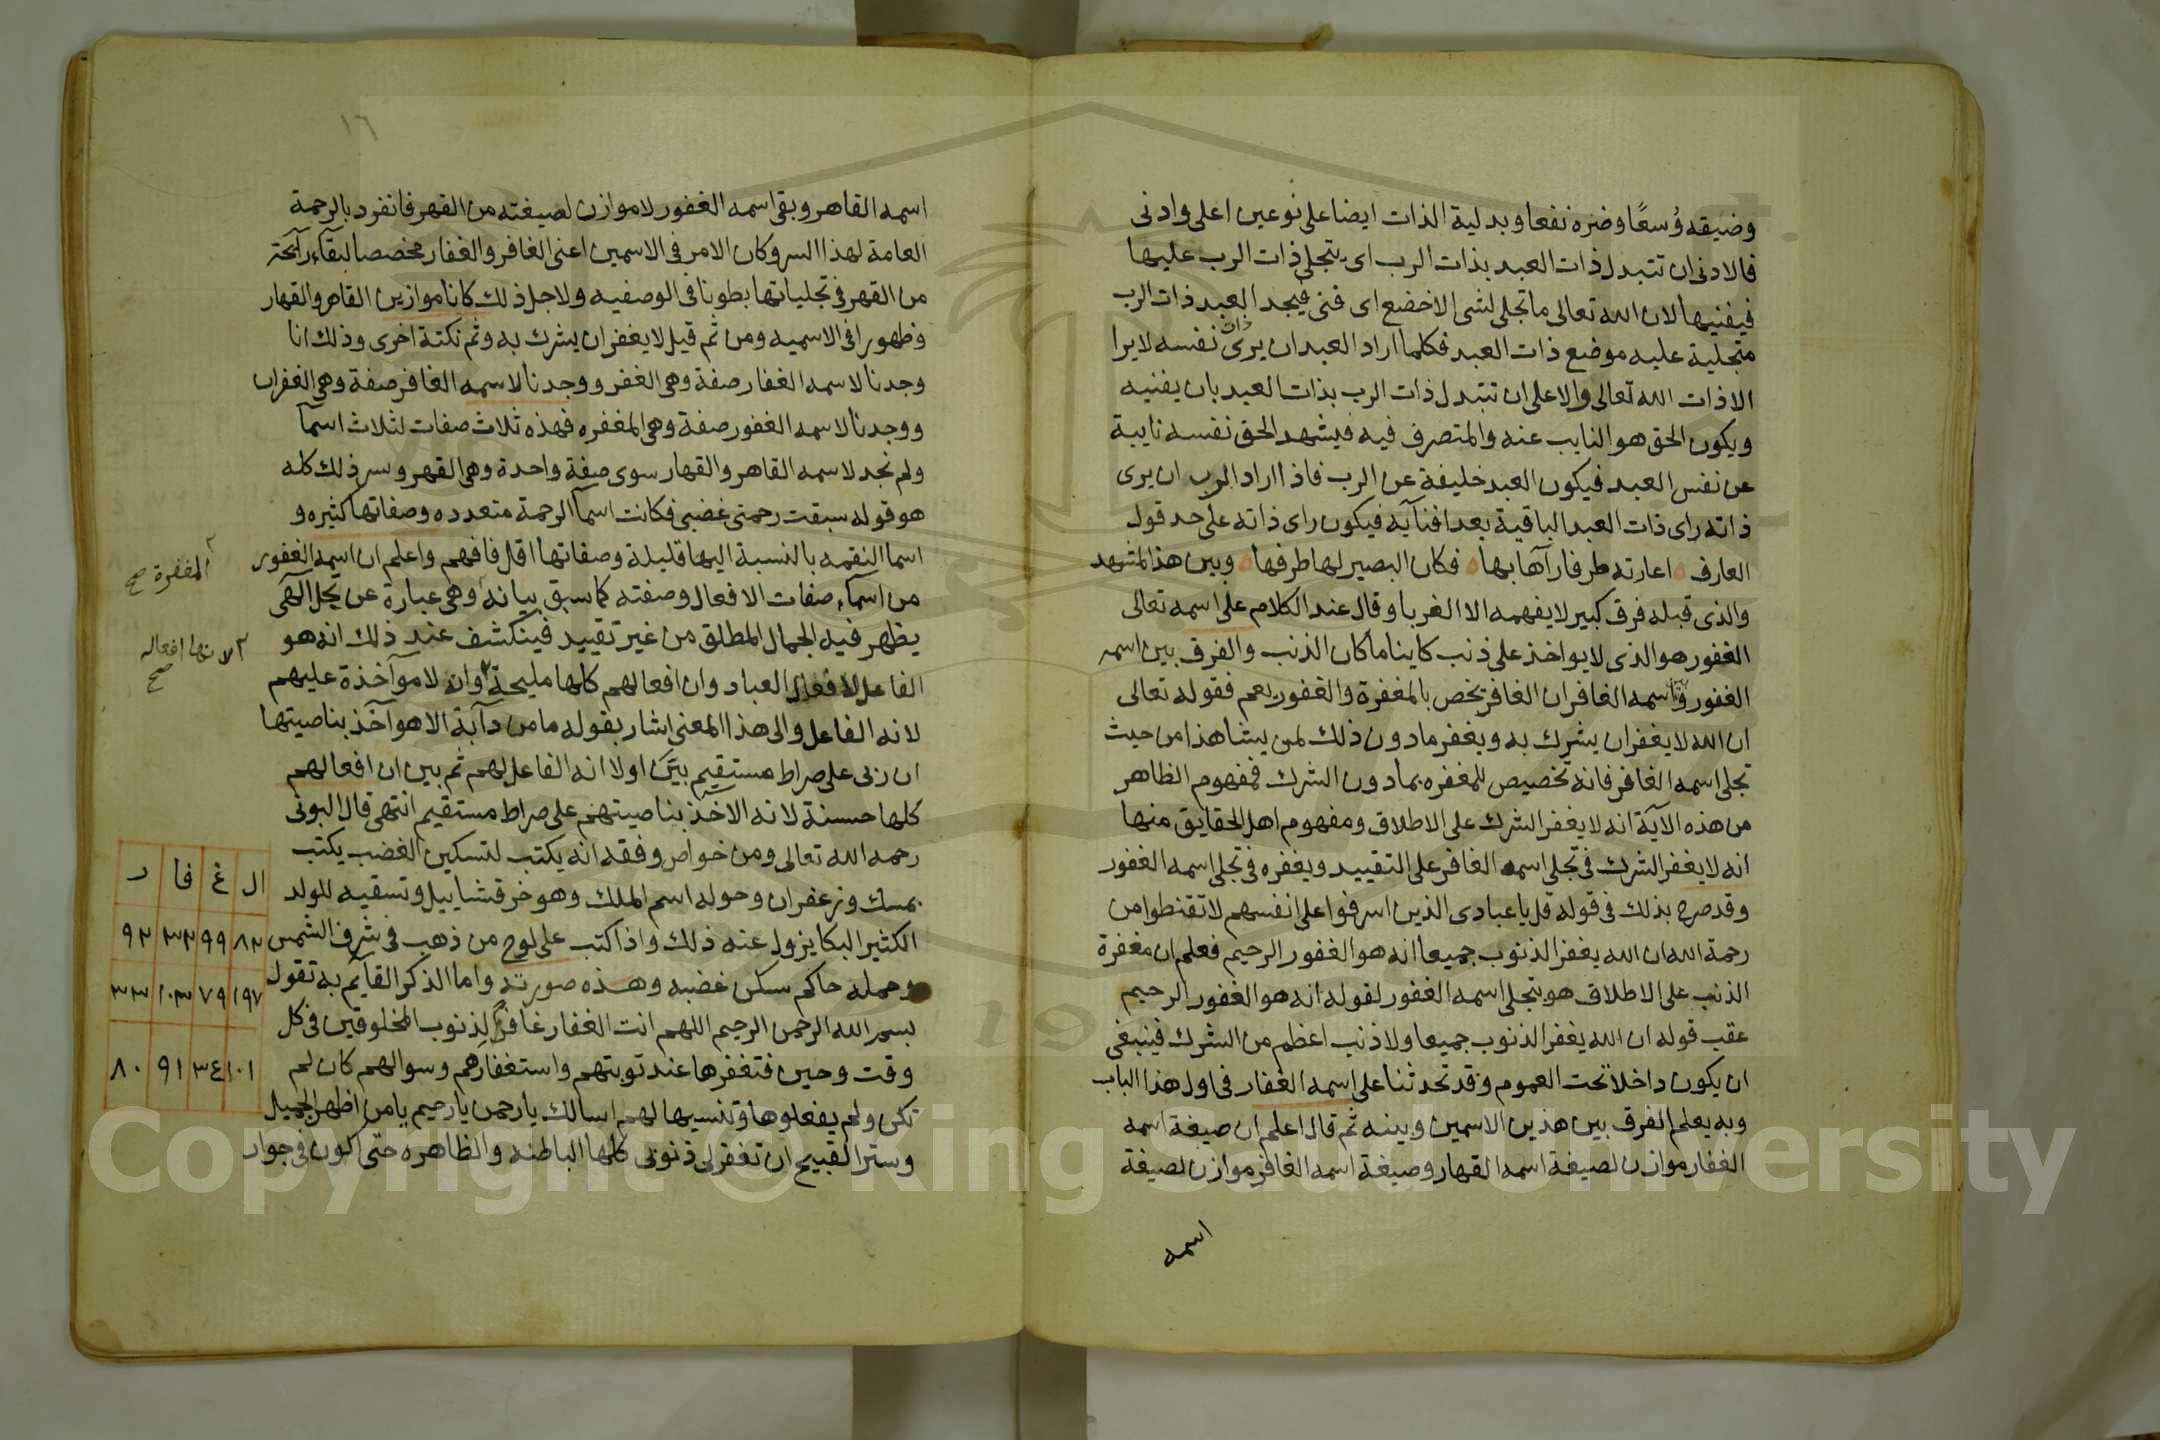 وضيقه وُسعًا وضره نفعا وبدلية الذات ايضا على نوعين اعلى وادنى
فالادنى ان تتبدل ذات العبد بذات الرب اى يتجلى ذات الرب عليها
فيفنيها لان الله تعالى ما تجلى لشى الا خضع اى فنى فيجد العبد ذات الرب
متجلية عليه موضع ذات العبد فكلما اراد العبد ان يرى ذات نفسه لا يرا
الا ذات الله تعالى والاعلى ان تتبدل ذات الرب بذات العبد بان يفنيه
ويكون الحق هو النايب عنه والمتصرف فيه فيشهد الحق نفسه نايبة
عن نفس العبد فيكون العبد خليفة عن الرب فاذا اراد الرب ان يرى
ذاته راى ذات العبد الباقية بعد افنآيه فيكون راى ذاته على حد قول
العارف ه اعارته طرفا رآها بها ه فكان البصير لها طرفها ه وبين هذا المشهد
والذى قبله فرق كبير لا يفهمه الا الغربا وقال عند الكلام على اسمه تعالى
الغفور هو الذى لا يواخذ على ذنب كاينا ما كان الذنب والفرق بين اسمه
الغفور واسمه الغافر ان الغافر يخص بالمغفرة والغفور يعم فقوله تعالى
ان الله لا يغفر ان يشرك به ويغفر ما دون ذلك لمن يشا هذا من حيث
تجلى اسمه الغافر فانه تخصيص للمغفره بمادون الشرك فمفهوم الظاهر
من هذه الآية انه لا يغفر الشرك على الاطلاق ومفهوم اهل الحقايق منها
انه لا يغفر الشرك فى تجلى اسمه الغافر على التقييد ويغفره فى تجلى اسمه الغفور
وقد صرح بذلك فى قوله قل يا عبادى الذين اسرفوا على انفسهم لا تقنطوا من
رحمة الله ان الله يغفر الذنوب جميعا انه هو الغفور الرحيم فعلم ان مغفرة
الذنب على الاطلاق هو بتجلى اسمه الغفور لقوله انه هو الغفور الرحيم
عقب قوله ان الله يغفر الذنوب جميعا ولا ذنب اعظم من الشرك فينبغى
ان يكون داخلا تحت العموم وقد تحدثنا على اسمه الغفار فى اول هذا الباب
وبه يعلم الفرق بين هذين الاسمين وبينه ثم قال اعلم ان صيغة اسمه
الغفار موازن لصيغة اسمه القهار وصيغة اسمه الغافر موازن لصيغة
اسمه
١٦
اسمه القاهر وبقى اسمه الغفور لا موازن لصيغته من القهر فانفرد بالرحمة
العامة لهذا السر وكان الامر فى الاسمين اعنى الغافر والغفار مخصصا لبقآء رآئحة
من القهر فى تجلياتها بطونا فى الوصفيه ولاجل ذلك كانا موازين القاهر والقهار
وظهورا فى الاسميه ومن ثم قيل لا يغفر ان يشرك به وثم نكتة اخرى وذلك انا
وجدنا لاسمه الغفار صفة وهى الغفر ووجدنا لاسمه الغافر صفة وهى الغفران
ووجدنا لاسمه الغفور صفة وهى المغفره فهذه ثلاث صفات لثلاث اسمآ
ولم نجد لاسمه القاهر والقهار سوى صفة واحدة وهى القهر وسر ذلك كله
هو قوله سبقت رحمتى غضبى فكانت اسمآ الرحمة متعدده وصفاتها كثيره و
اسما النقمه بالنسبة اليها قليلة وصفاتها اقل فافهم واعلم ان اسمه الغفور
من اسمآء صفات الافعال وصفته كما سبق بيانه وهى عبارة عن تجل الهى
المغفرة صح
يظهر فيه الجمال المطلق من غير تقييد فينكشف عند ذلك انه هو
الفاعل لافعال العباد وان افعالهم كلها مليحة وانه لا موآخذة عليهم
لانها افعاله صح
لانه الفاعل والى هذا المعنى اشار بقوله ما من دآبة الا هو آخذ بناصيتها
ان ربى على صراط مستقيم بيّن اولا انه الفاعل لهم ثم بين ان افعالهم
كلها حسنة لانه الاخذ بناصيتهم على صراط مستقيم انتهى قال البونى
رحمه الله تعالى ومن خواص وفقه انه يكتب لتسكين الغضب يكتب
بمسك وزعفران وحوله اسم الملك وهو خرقشاييل وتسقيه للولد
الكثير البكا يزول عنه ذلك واذا كتب على لوح من ذهب فى شرف الشمس
وحمله حاكم سكن غضبه وهذه صورته واما الذكر القآيم به تقول
بسم الله الرحمن الرحيم اللهم انت الغفار غافر لذنوب المخلوقين فى كل
وقت وحين فتغفرها عند توبتهم واستغفارهم وسوالهم كان لم
تكن ولم يفعلوها وتنسيها لهم اسالك يا رحمن يا رحيم يا من اظهر الجميل
وستر القبيح ان تغفر لى ذنوبى كلها الباطنه والظاهره حتى اكون فى جوار
ال غ فا ر
٨٣ ٩٩ ٣٣ ٩٣
١٩٧ ٧٩ ١٠٣ ٣٣
١٠١ ٣٤ ٩١ ٨٠
Copyright © King Saud University